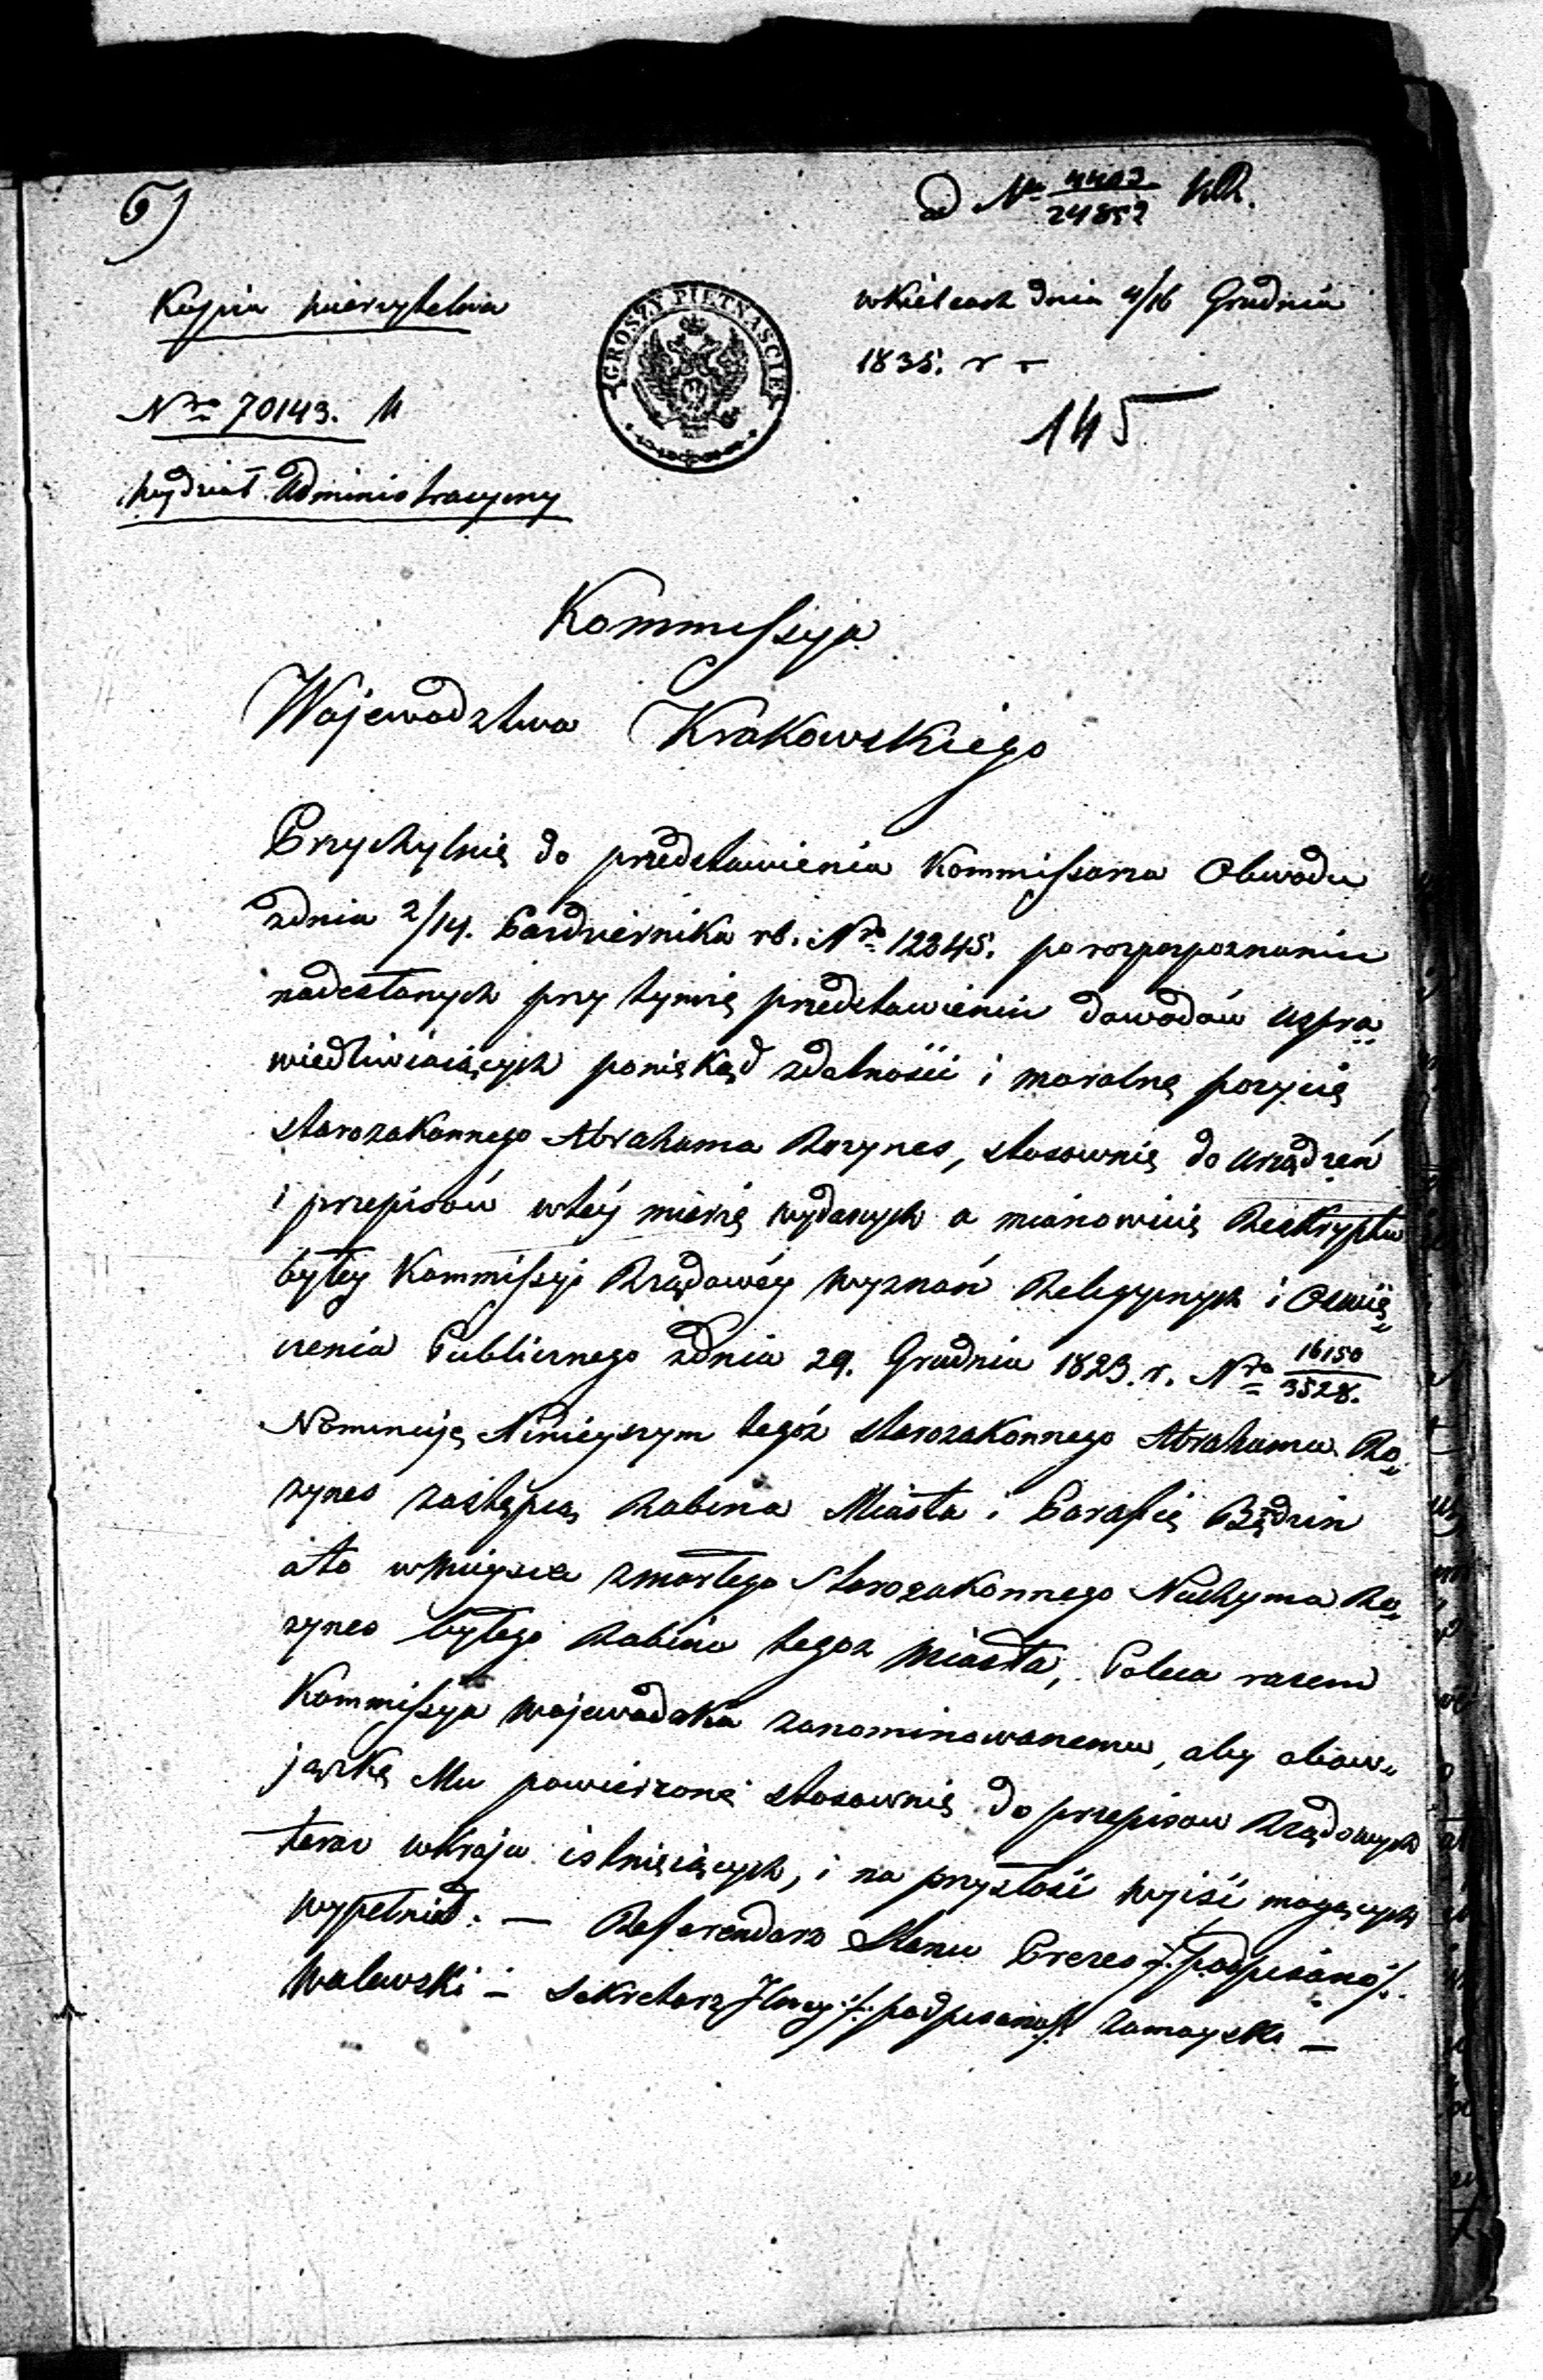 6)
ad Nro 4403/24852 KR.
Kopia wierzytelna
w Kielcach dnia 4/16 Grudnia
1835. r
GROSZY PIETNAŚCIE
Nro 70143.
145
Wydział Administracyiny
Kommissyja
Województwa Krakowskiego
Przychylnię do przedstawienia Kommissarza Obwodu
zdnia 2/14. Października rb. Nro 12345. po rozporpoznaniu
nadesłanych przy tymżę przedstawieniu dowodów uspra„
wiedliwiaiących poniękąd zdatności i moralnę pozycię
starozakonnego Abrahama Rozynes, stosownię do urządzeń
i przepisów wtéy mierzę wydanych a mianowicię Reskryptu
byłey Kommissyi Rządowéy Wyznań Religyinych i Oświę„
cenia Publicznego zdnia 29. Grudnia 1823. r. Nro 16150/3528.
Nominuię Ninieyszym tegóż starozakonnego Abrahama Ro„
zynes zastępcą Rabina Miasta i Parafię Będzin
ato wmieysce zmarłego Starozakonnego Nuchyma Ro„
zynes byłego Rabina tegoz Miasta, Poleca razem
Kommissyja Wojewodzka zanominowanemu, aby obow„
jązkę Mu powierzonę stosownię do przepisow Rządowych
teraz wkraju istnięiących, i na przyszłość wyiść mogących
wypełniał. — Referendarz Stanu Prezes /: podpisano /:
Walewski — Sekretarz Jlny /: podpisano /: Zamoyski —